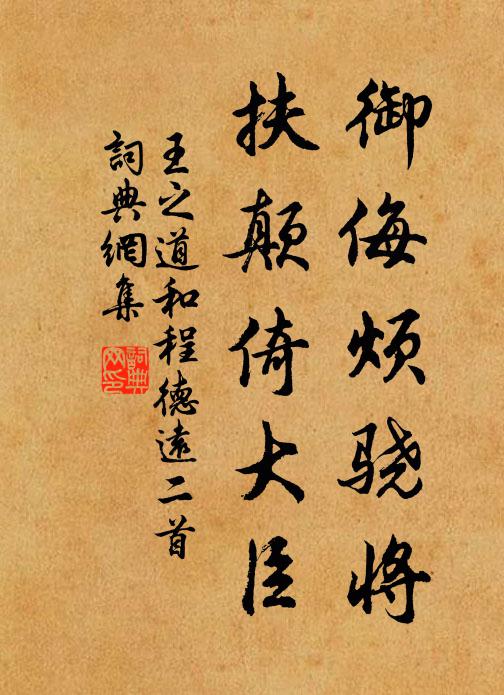 御侮烦骁将
扶颠倚大臣
王之道和程德遠二首
詞典網集
詞典網印